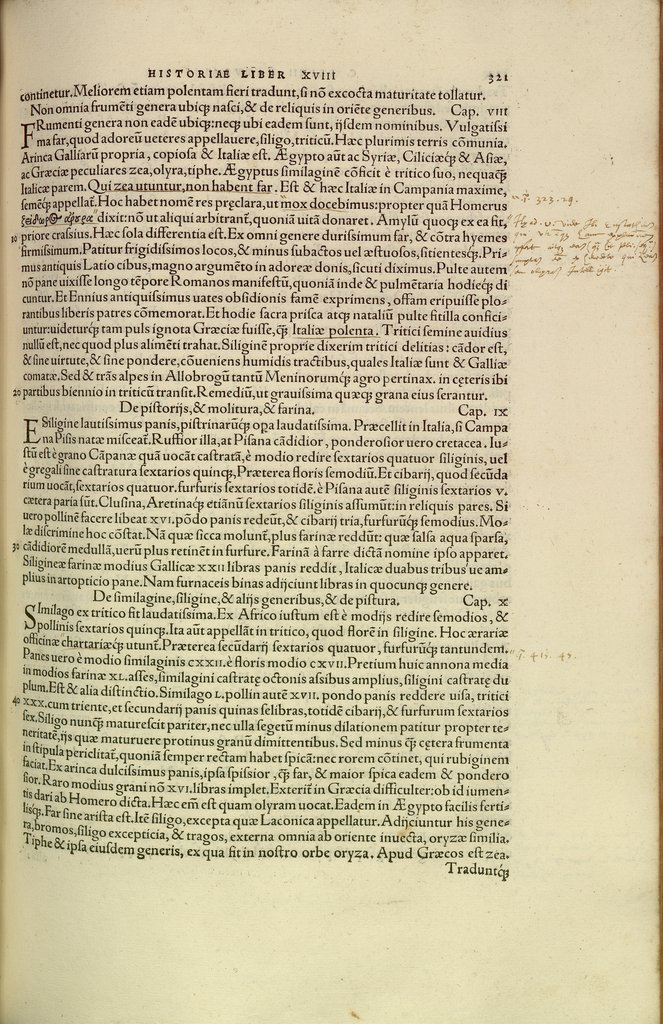 HISTORIAE LIBER XVIII 321
continetur. Meliorem etiam polentam fieri tradunt, si nō excocta maturitate tollatur.
Non omnia frumēti genera ubiqꝫ nasci, & de reliquis in oriēte generibus. Cap. VIII
FRumenti genera non eadē ubiqꝫ: neqꝫ ubi eadem sunt, ijsdem nominibus. Vulgatissi
ma far, quod adoreū ueteres appellauere, siligo, triticū. Hæc plurimis terris cōmunia.
Arinca Galliarū propria, copiosa & Italiæ est. Ægypto aūt ac Syriæ, Ciliciæqꝫ & Asiæ,
ac Græciæ peculiares zea, olyra, tiphe. Ægyptus similaginē cōficit è tritico suo, nequaqꝫ
Italicæ parem. Qui zea utuntur, non habent far. Est & hæc Italiæ in Campania maxime,
semēqꝫ appellat̄. Hoc habet nomē res pręclara, ut mox docebimus: propter quā Homerus
ζείδωρος ἄρουρα dixit: nō ut aliqui arbitrant̄, quoniā uitā donaret. Amylū quoqꝫ ex ea fit,
10 priore crassius. Hæc sola differentia est. Ex omni genere durissimum far, & cōtra hyemes
firmissimum. Patitur frigidissimos locos, & minus subactos uel æstuosos, sitientesqꝫ. Pri-
mus antiquis Latio cibus, magno argumēto in adoreæ donis, sicuti diximus. Pulte autem
nō pane uixisse longo tēpore Romanos manifestū, quoniā inde & pulmētaria hodieqꝫ di
cuntur. Et Ennius antiquissimus uates obsidionis famē exprimens, offam eripuisse plo-
rantibus liberis patres cōmemorat. Et hodie sacra prisca atqꝫ nataliū pulte fitilla confici-
untur: uideturqꝫ tam puls ignota Græciæ fuisse, qꝫ Italiæ polenta. Tritici semine auidius
nullū est, nec quod plus alimēti trahat. Siliginē proprie dixerim tritici delitias: cādor est,
& sine uirtute, & sine pondere, cōueniens humidis tractibus, quales Italiæ sunt & Galliæ
comatæ. Sed & trās alpes in Allobrogū tantū Meninorumqꝫ agro pertinax. in ceteris ibi
20 partibus biennio in triticū transit. Remediū, ut grauissima quæqꝫ grana eius serantur.
De pistorijs, & molitura, & farina. Cap. IX
ESiligine lautissimus panis, pistrinarūqꝫ opa laudatissima. Præcellit in Italia, si Campa
na Pisis natæ misceat̄. Ruffior illa, at Pisana cādidior, ponderosior uero cretacea. Iu-
stū est è grano Cāpanæ quā uocāt castratā, è modio redire sextarios quatuor siliginis, uel
è gregali sine castratura sextarios quinqꝫ, Præterea floris semodiū. Et cibarij, quod secūda
rium uocāt, sextarios quatuor. furfuris sextarios totidē. è Pisana autē siliginis sextarios v.
cætera paria sūt. Clusina, Aretinaqꝫ etiānū sextarios siliginis assumūt: in reliquis pares. Si
uero pollinē facere libeat XVI. pōdo panis redeūt, & cibarij tria, furfurūqꝫ semodius. Mo-
læ discrimine hoc cōstat. Nā quæ sicca molunt̄, plus farinæ reddūt: quæ salsa aqua sparsa,
30 cādidiorē medullā, uerū plus retinēt in furfure. Farinā à farre dictā nomine ipso apparet.
Siligineæ farinæ modius Gallicæ XXII libras panis reddit, Italicæ duabus tribus'ue am-
plius in artopticio pane. Nam furnaceis binas adijciunt libras in quocunqꝫ genere.
De similagine, siligine, & alijs generibus, & de pistura. Cap. X
SImilago ex tritico fit laudatissima. Ex Africo iustum est è modijs redire semodios, &
pollinis sextarios quinqꝫ. Ita aūt appellāt in tritico, quod florē in siligine. Hoc ærariæ
officinæ chartariæqꝫ utunt̄. Præterea secūdarij sextarios quatuor, furfurūqꝫ tantundem.
Panes uero è modio similaginis CXXII. è floris modio CXVII. Pretium huic annona media
in modios farinæ XL. asses, similagini castratę octonis assibus amplius, siligini castratę du
plum. Est & alia distinctio. Similago L. pollin autē XVII. pondo panis reddere uisa, tritici
40 XXX. cum triente, et secundarij panis quinas selibras, totidē cibarij, & furfurum sextarios
sex. Siligo nunqꝫ maturescit pariter, nec ulla segetū minus dilationem patitur propter te-
neritatē, ijs quæ maturuere protinus granū dimittentibus. Sed minus qꝫ cętera frumenta
in stipula periclitat̄, quoniā semper rectam habet spicā: nec rorem cōtinet, qui rubiginem
faciat. Ex arinca dulcissimus panis, ipsa spissior, qꝫ far, & maior spica eadem & pondero
sior. Raro modius grani nō XVI. libras implet. Exterit̄ in Græcia difficulter: ob id iumen-
tis dari ab Homero dicta. Hæc em̄ est quam olyram uocat. Eadem in Ægypto facilis ferti-
lisqꝫ. Far sine arista est. Itē siligo, excepta quæ Laconica appellatur. Adijciuntur his gene-
ra, bromos, siligo excepticia, & tragos, externa omnia ab oriente inuecta, oryzæ similia.
Tiphe & ipsa eiusdem generis, ex qua fit in nostro orbe oryza. Apud Græcos est zea.
Traduntqꝫ
323. 29.
413. 43.